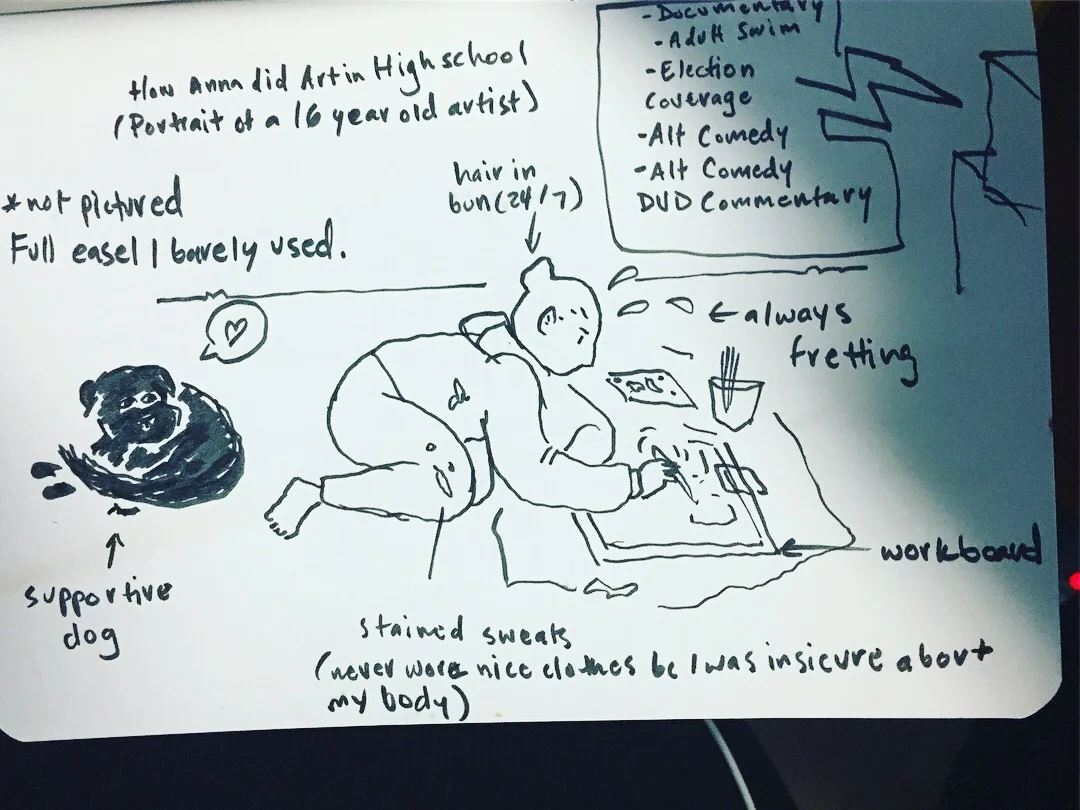 How Anna did Art in High school
(Portrait of a 16 year old artist)
- Documentary
- Adult Swim
- Election
Coverage
- Alt Comedy
- Alt Comedy
DVD Commentary
hair in
bun (24/7)
*not pictured
Full easel I barely used.
← always
fretting
workboard
supportive
dog
stained sweats
(never wore nice clothes bc I was insicure about
my body)